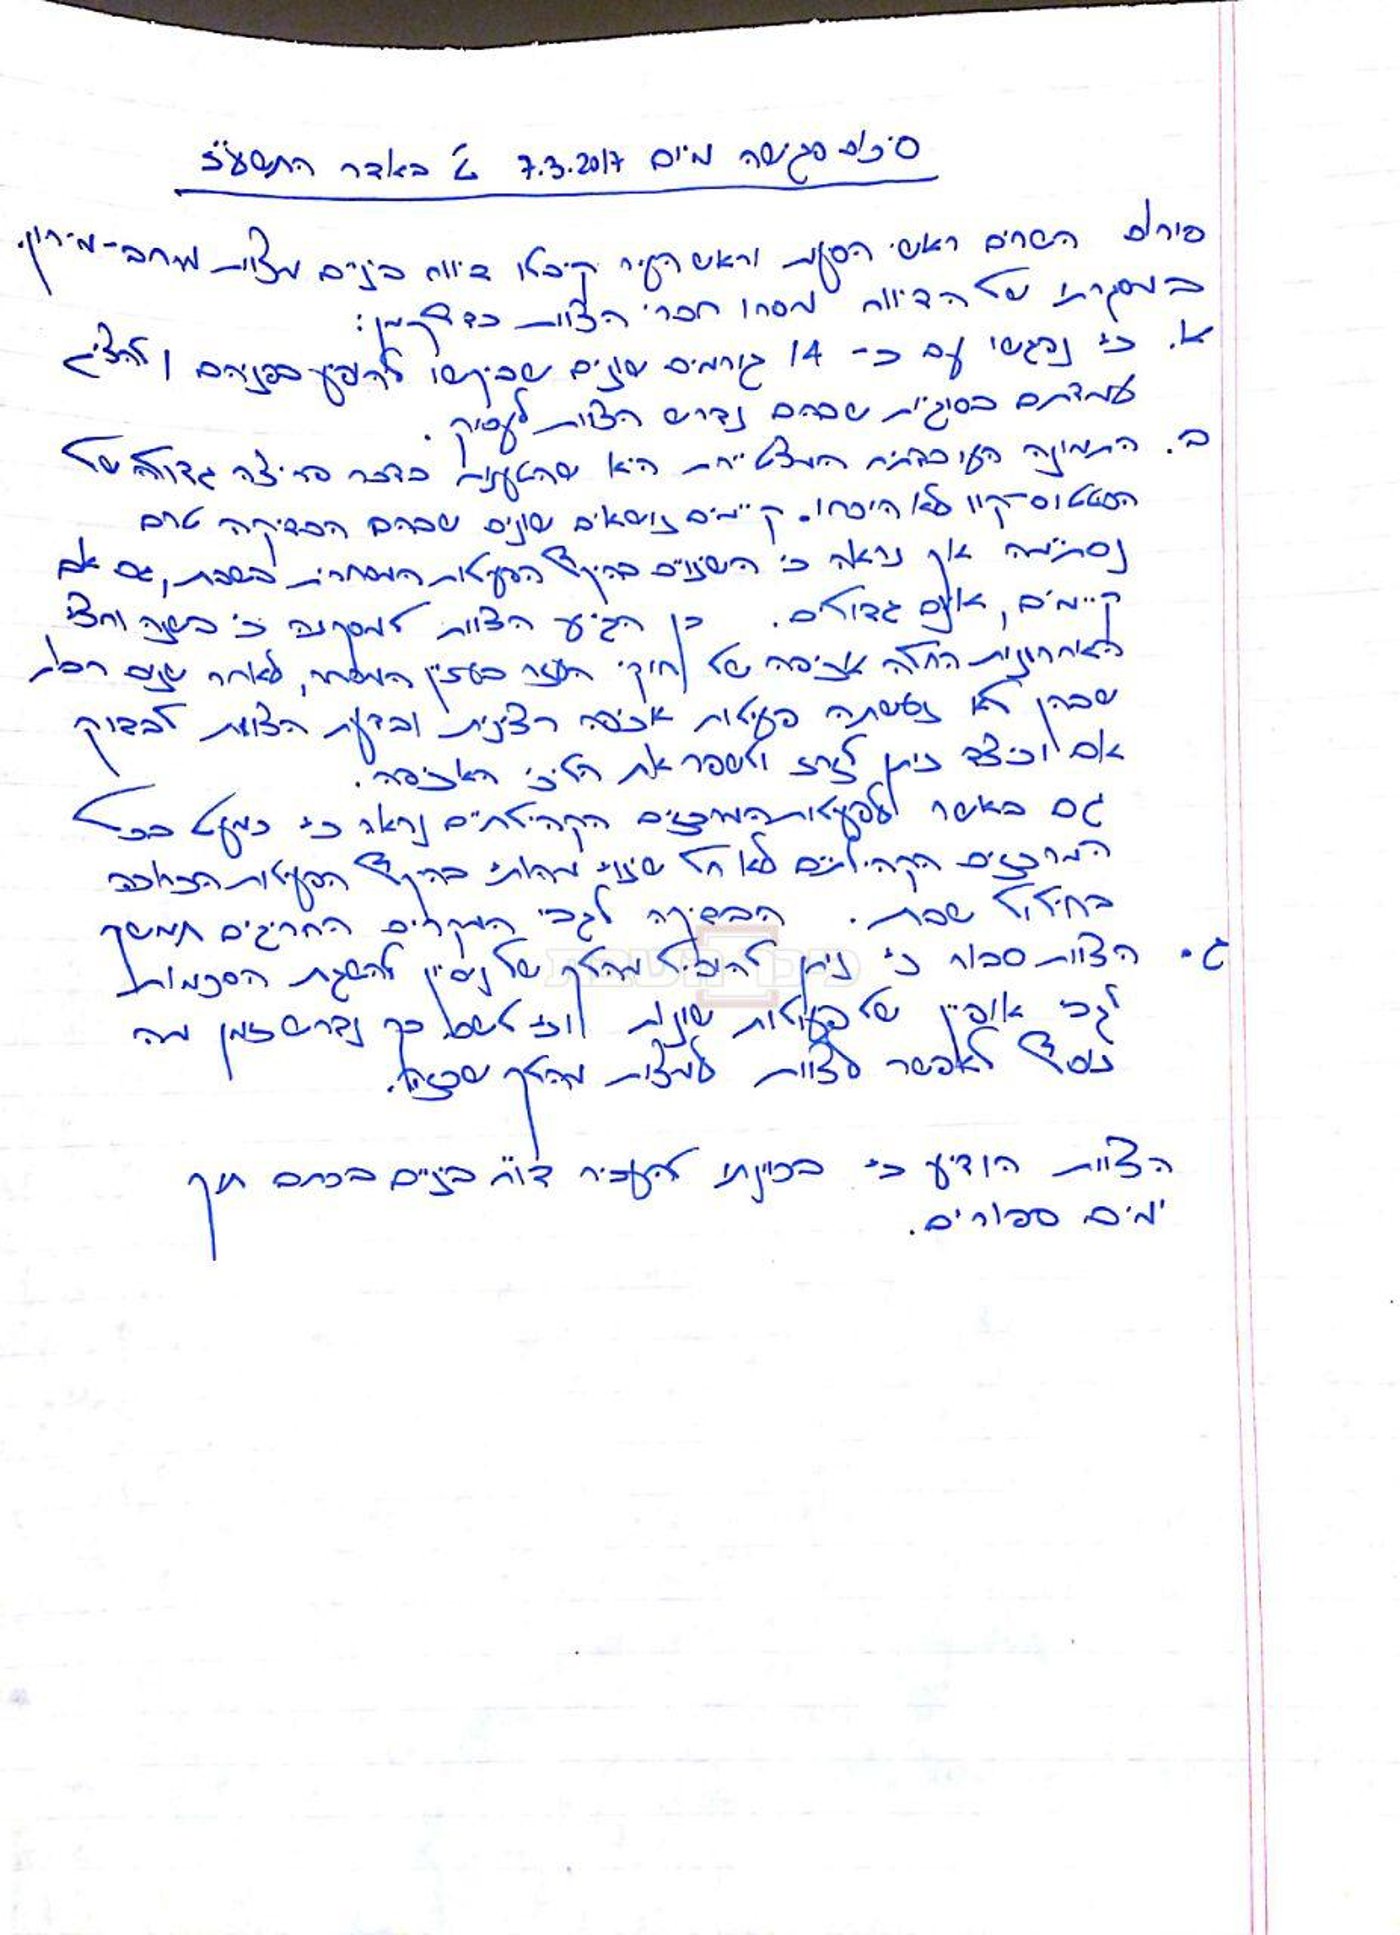 סיכום פגישה מיום 7.3.2017 ט' באדר התשע"ז
פורום השרים ראשי הסיעות וראש העיר קיבלו דיווח ביניים מצוות מרחב-מירון.
במסגרתו של הדיווח מסרו חברי הצוות כדלקמן:
א. כי נפגשו עם כ- 14 גורמים שונים שביקשו להופיע בפניהם ולהציג
עמדתם בסוגיות שבהם נדרש הצוות לעסוק.
ב. התמונה העובדתית המצטיירת היא שהטענות בדבר פריצה גדולה של
הסטטוס-קוו לא הוכחו. קיימים נושאים שונים שבהם הבדיקה טרם
נסתיימה אך נראה כי השינויים בהיקף הפעילות המסחרית בשבת, גם אם
קיימים, אינם גדולים. כן הגיע הצוות למסקנה כי בשנה וחצי
האחרונות החלה אכיפה של חוקי העזר בעניין המסחר, לאחר שנים רבות
שבהן לא נעשתה פעילות אכיפה רצינית ובדעת הצוות לבדוק
אם וכיצד ניתן לזרז ולשפר את הליכי האכיפה.
גם באשר לפעילות המרכזים הקהילתיים נראה כי כמעט בכל
המרכזים הקהילתיים לא חל שינוי מהותי בהיקף הפעילות הכרוכה
בחילול שבת. הבדיקה לגבי המקרים החריגים תמשך
ג. הצוות סבור כי ניתן להוביל מהלך של ניסיון להשגת הסכמות
לגבי אופיין של פעילות שונות וכי לשם כך נדרש זמן מה
נוסף לאפשר לצוות למצות מהלך שכזה.
הצוות הודיע כי בכוונתו להעביר דו"ח ביניים בכתב תוך
ימים ספורים.
כיכר השבת